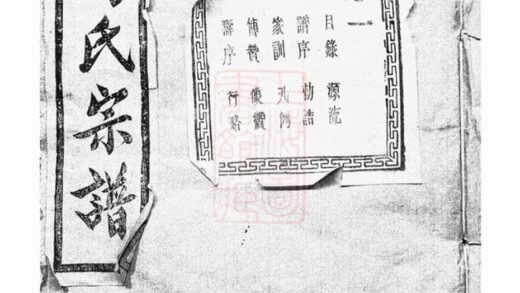 一
目錄 源流
譜序 勅誥
家訓 凡例
傳贊 像贊
壽序 行略
氏宗譜